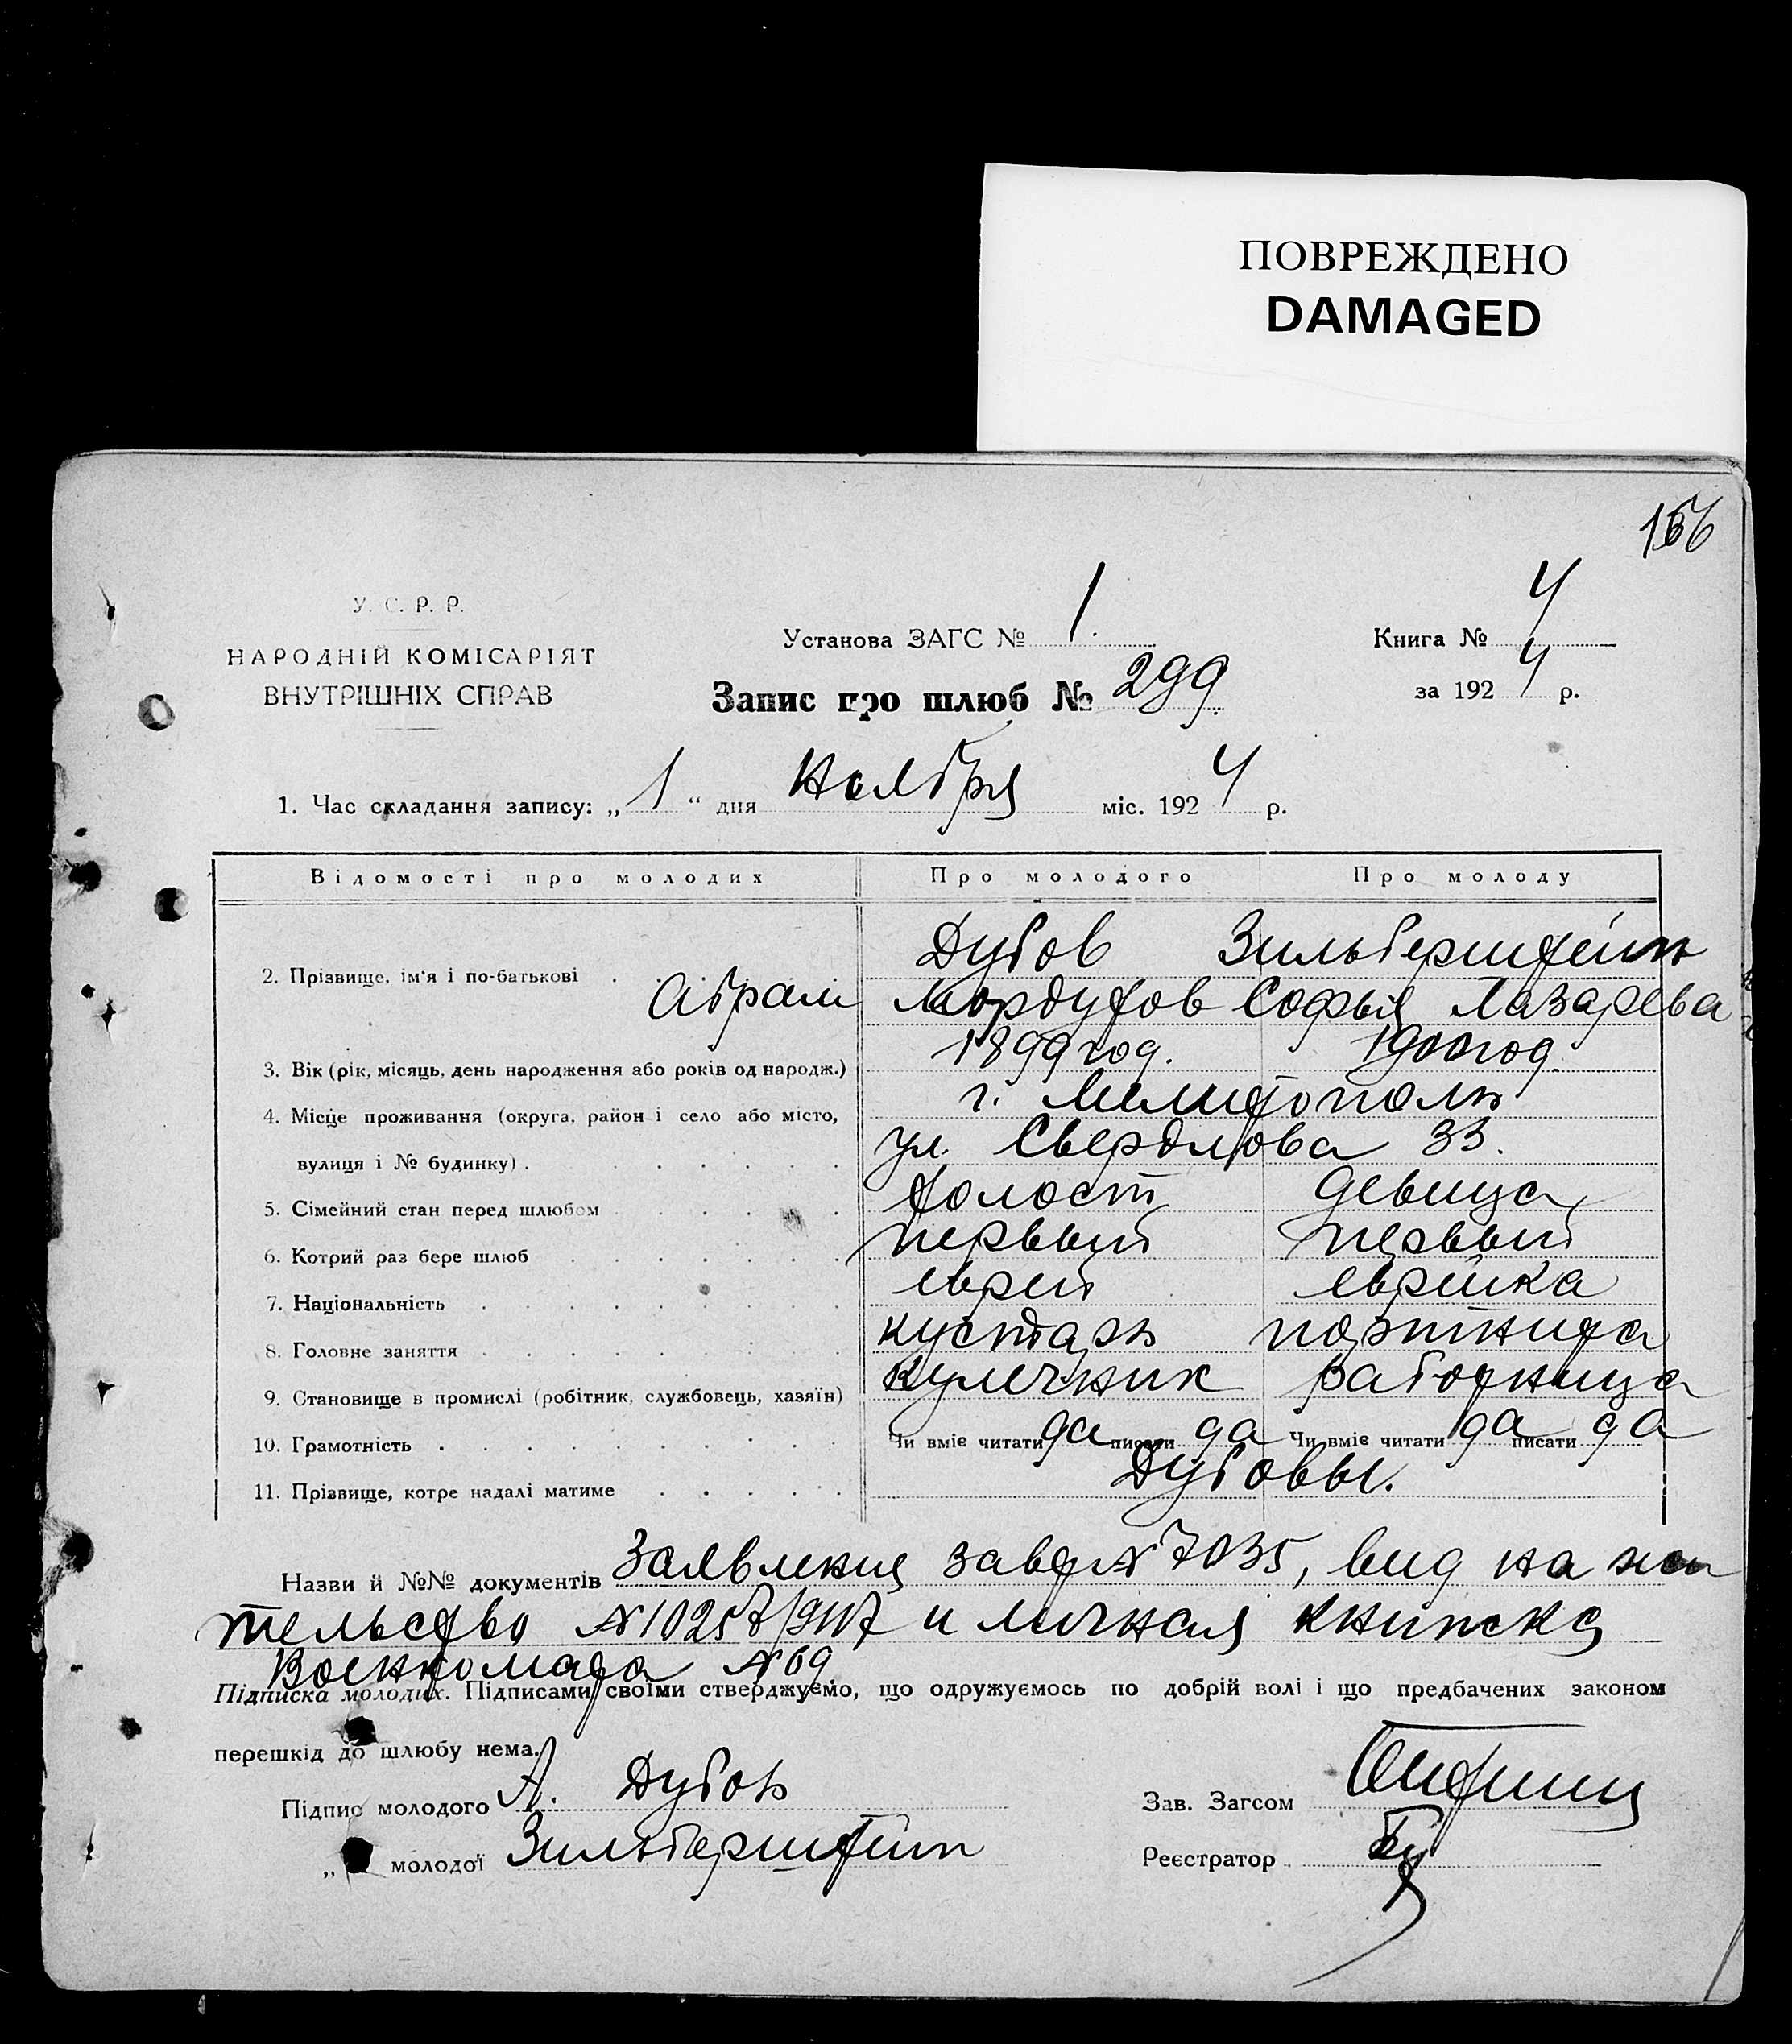 ПОВРЕЖДЕНО
DAMAGED
У. С. Р. Р.
НАРОДНІЙ КОМІСАРІЯТ
ВНУТРІШНІХ СПРАВ
Установа ЗАГС № 1.
Книга № 4
за 192 4 р.
Запис про шлюб № 299
1. Час складання запису: „ 1 “ дня Ноября міс. 192 4 р.
Відомості про молодих Про молодого Про молоду
Дубов Зильберштейн
2. Прізвище, ім'я і по-батькові
Абрам Мордухов Софья Лазарева
3. Вік (рік, місяць, день народження або років од народж.) 1899 год. 1900 год.
4. Місце проживання (округа, район і село або місто, г. Мелитополь
вулиця і № будинку) ул. Свердлова 33.
5. Сімейний стан перед шлюбом холост девица
6. Котрий раз бере шлюб первый первый
7. Національність еврей еврейка
8. Головне заняття кустарь портниха
9. Становище в промислі (робітник, службовець, хазяїн) кулечник работница
10. Грамотність Чи вміє читати да писати да Чи вміє читати да писати да
11. Прізвище, котре надалі матиме Дубовы.
Назви й №№ документів Заявления № 7035, вид на жи
тельство № и личная книжка
Военкомата № 69
Підписка молодих. Підписами своїми стверджуємо, що одружуємось по добрій волі і що предбачених законом
перешкід до шлюбу нема.
Підпис молодого А. Дубов
„ молодої Зильберштейн
Зав. Загсом
Реєстратор